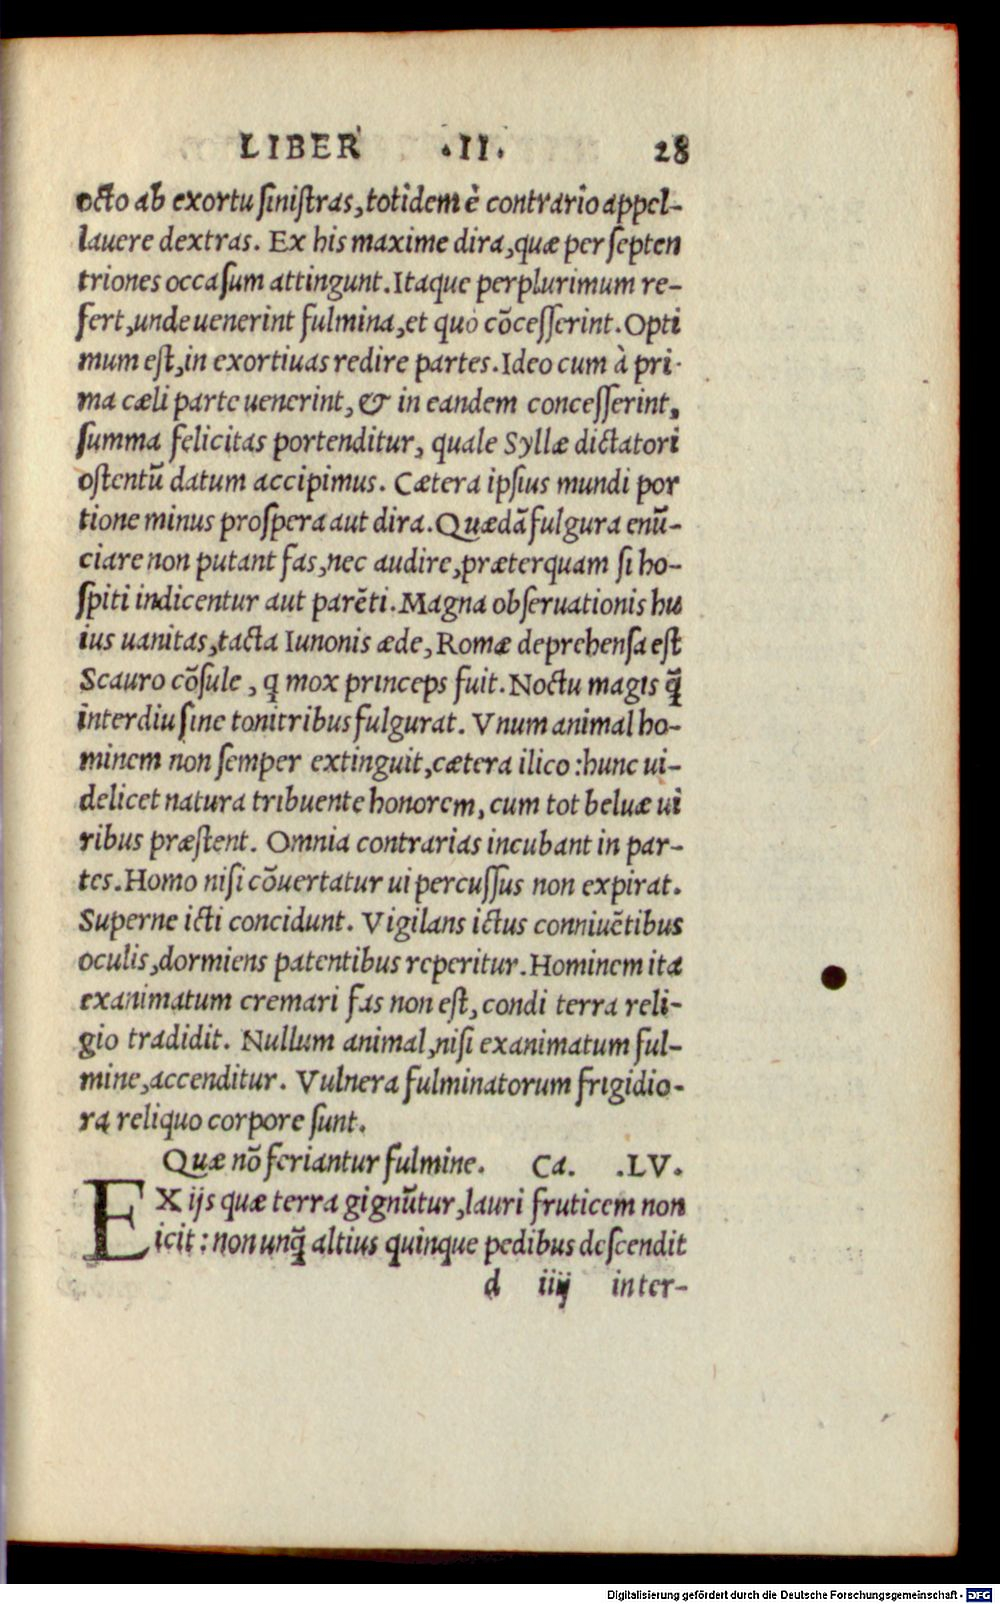 LIBER .II. 28
octo ab exortu sinistras, totidem è contrario appel-
lauere dextras. Ex his maxime dira, quæ per septen
triones occasum attingunt. Itaque perplurimum re-
fert, unde uenerint fulmina, et quò cõcesserint. Opti
mum est, in exortiuas redire partes. Ideo cum à pri-
ma cæli parte uenerint, & in eandem concesserint,
summa felicitas portenditur, quale Syllæ dictatori
ostentũ datum accipimus. Cætera ipsius mundi por
tione minus prospera aut dira. Quædã fulgura enũ-
ciare non putant fas, nec audire, præterquam si ho-
spiti indicentur aut parẽti. Magna obseruationis hu
ius uanitas, tacta Iunonis æde, Romæ deprehensa est
Scauro cõsule, q mox princeps fuit. Noctu magis q̃
interdiu sine tonitribus fulgurat. Vnum animal ho-
minem non semper extinguit, cætera ilico: hunc ui-
delicet natura tribuente honorem, cum tot beluæ ui
ribus præstent. Omnia contrarias incubant in par-
tes. Homo nisi cõuertatur ui percussus non expirat.
Superne icti concidunt. Vigilans ictus conniuẽtibus
oculis, dormiens patentibus reperitur. Hominem ita
exanimatum cremari fas non est, condi terra reli-
gio tradidit. Nullum animal, nisi exanimatum ful-
mine, accenditur. Vulnera fulminatorum frigidio-
ra reliquo corpore sunt.
Quæ nõ feriantur fulmine. Ca. .LV.
EX ijs quæ terra gignũtur, lauri fruticem non
icit: non unq̃ altius quinque pedibus descendit
d iiij inter-
Digitalisierung gefördert durch die Deutsche Forschungsgemeinschaft - DFG